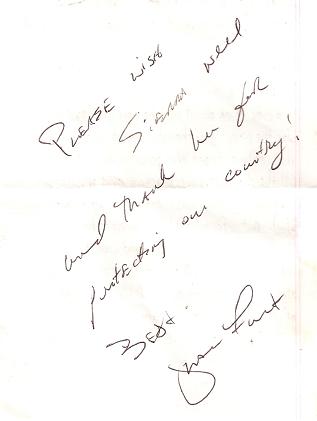 Please wish
Sierra well
and thank her for
protecting our country!
Best.